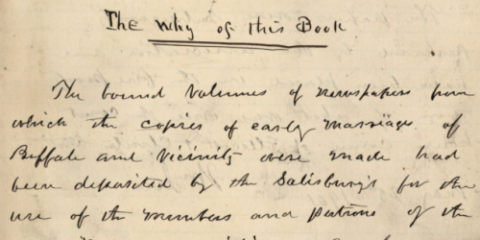 The Why of this Book
The bound Volumes of newspapers from
which the copies of early marriages of
Buffalo and Vicinity were made had
been deposited by the Salisburys for the
use of the members and patrons of the